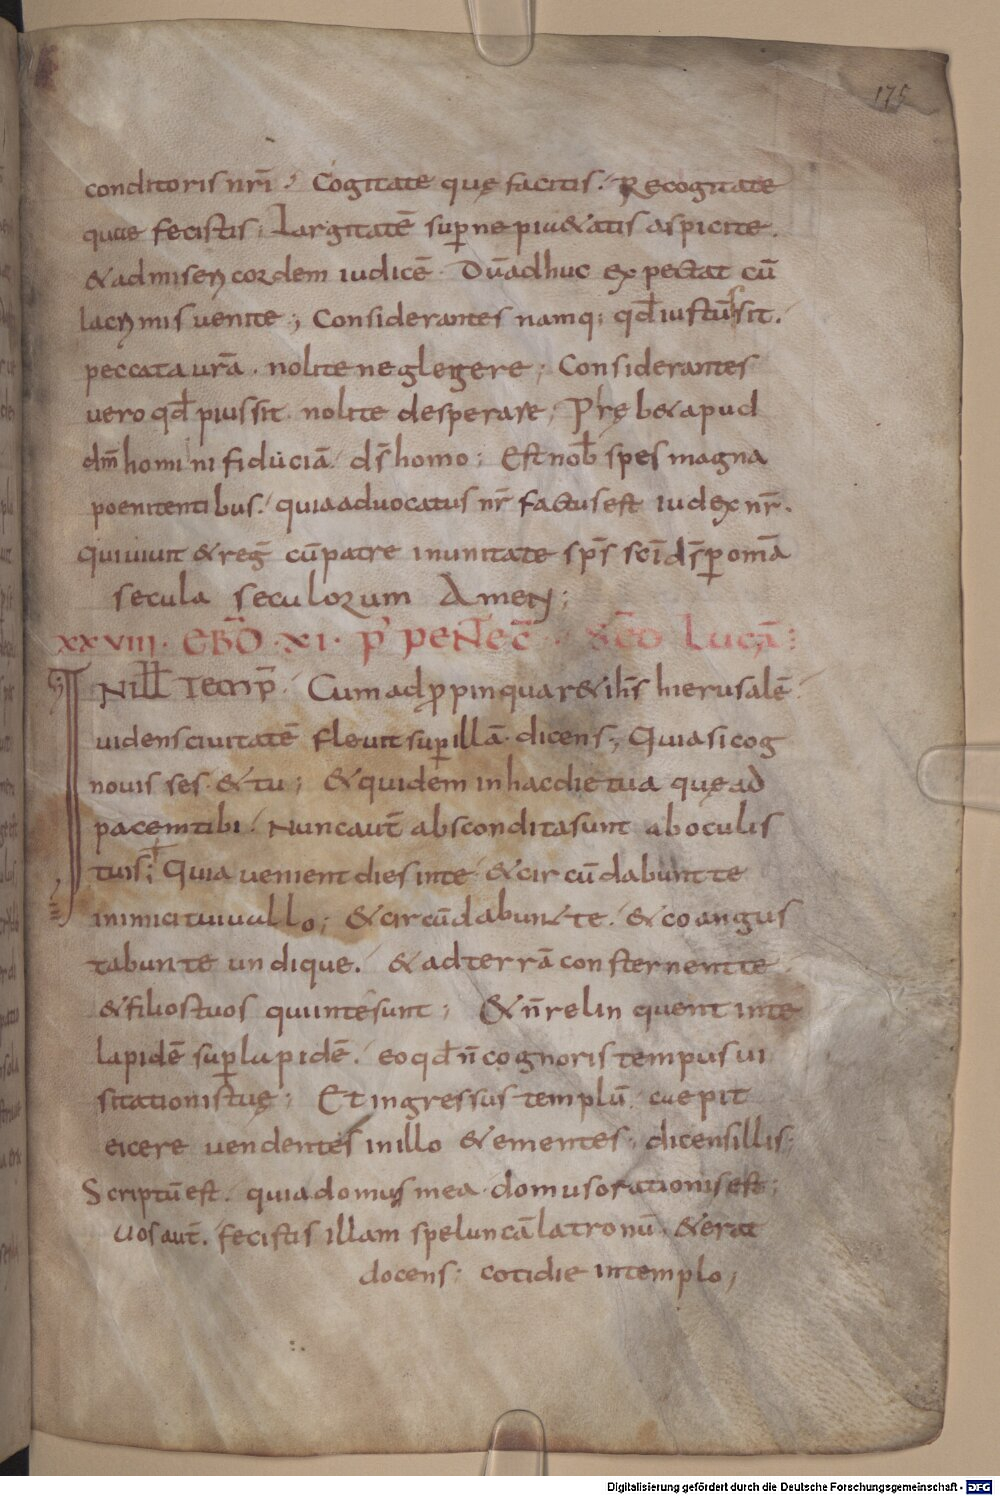 175
conditoris nr̄i. Cogitate quę facitis. Recogitate
quae fecistis; Largitatē sup̄ne pi&atis aspicite.
& ad misericordem iudicē. Dū adhuc expectat cū
lacrymis uenite; Considerantes namq; qd̄ iustus sit.
peccata ur̄a. nolite neglegere; Considerantes
uero qd̄ pius sit. nolite desperare; Pręb& apud
dm̄ homini fiduciā. ds̄ homo; Est nob̄ spes magna
poenitentibus. quia aduocatus nr̄ factus est iudex nr̄.
qui uiuit & reg̅ cū patre in unitate sps̄ sc̄i ds̄ p̄ om̄a
secula seculorum Amen;
XXVIII. EBD̄ XI. P̄ PENTEC̄. SCD̄ LUCĀ:
IN ILL̄ TEMP̄. Cum adp̄pinquar& ih̄s hierusalē
uidens ciuitatē fleuit sup̄ illā. dicens; Quia si cog
nouisses & tu; & quidem in hac die tua quę ad
pacem tibi. Nunc aut̄ abscondita sunt ab oculis
tuis; Quia uenient dies in te & circūdabunt te
inimici tui uallo; & circūdabunt te. & coangus
tabunt te undique. & ad terrā consternent te
& filios tuos qui in te sunt; & n̄ relinquent in te
lapidē sup̄ lapidē. eo qd̄ n̄ cognoris tempus ui
sitationis tuę; Et ingressus templū. caepit
eicere uendentes in illo & ementes; dicens illis;
Scriptū est. quia domus mea domus orationis est;
uos aut̄. fecistis illam speluncā latronū. & erat
docens; cotidie in templo;
Digitalisierung gefördert durch die Deutsche Forschungsgemeinschaft - DFG